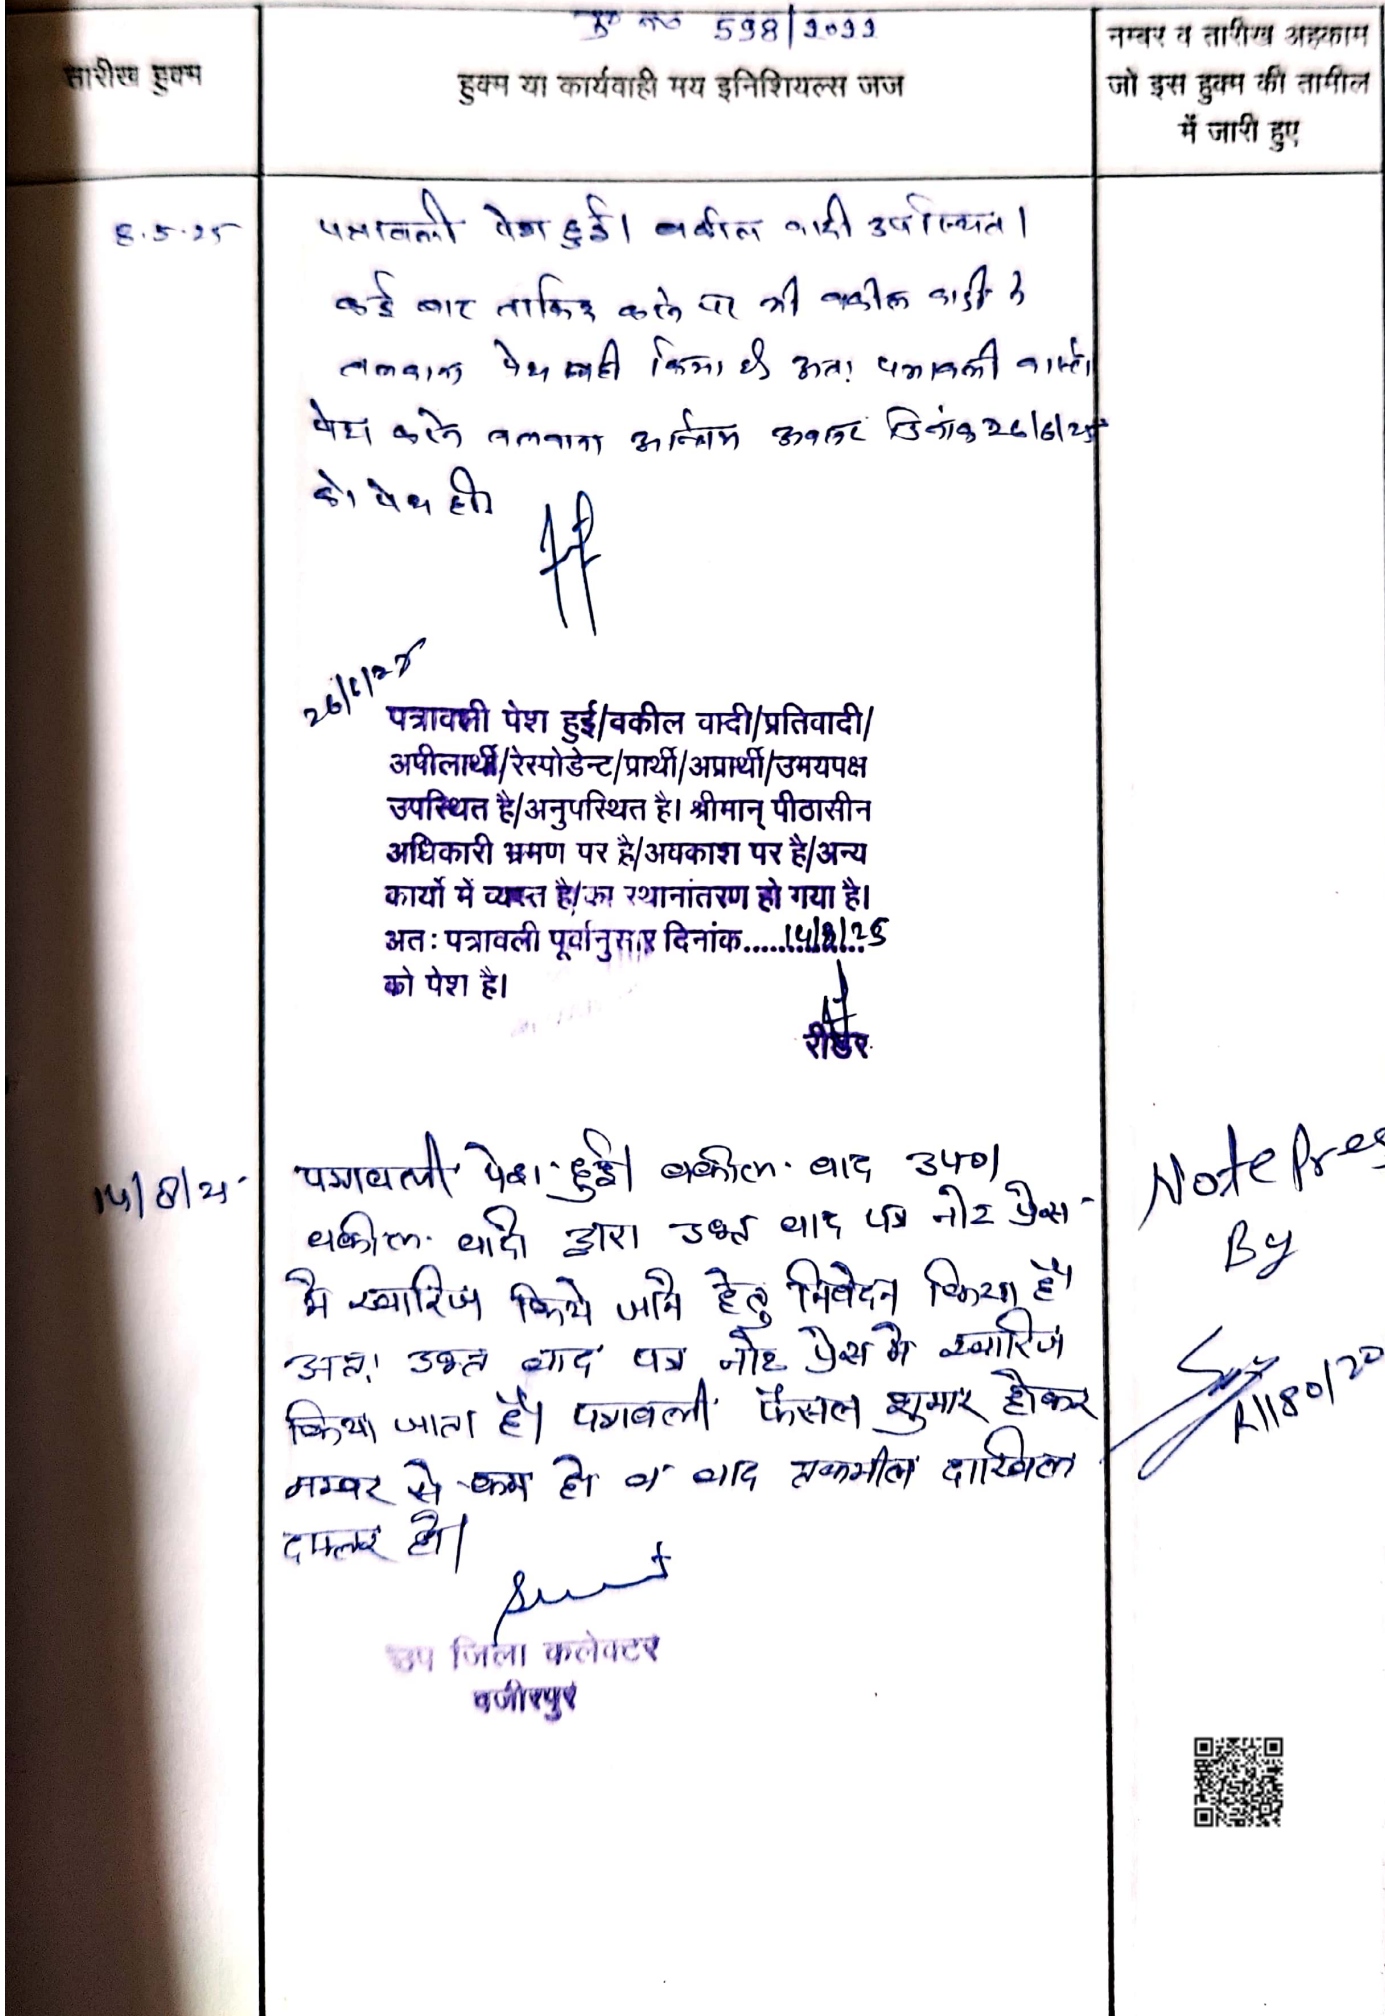 मु० न० 598/2022
तारीख हुक्म
हुक्म या कार्यवाही मय इनिशियल्स जज
नम्बर व तारीख अहकाम
जो इस हुक्म की तामील
में जारी हुए
8.5.25
पत्रावली पेश हुई। वकील वादी उपस्थित।
कई बार ताकिद करने पर भी वकील वादी ने
तलवाना पेश नही किया है अतः पत्रावली वास्ते
पेश करने तलवाना अन्तिम अवसर दिनांक 26/6/25
को पेश हो।
26/6/25
पत्रावली पेश हुई/वकील वादी/प्रतिवादी/
अपीलार्थी/रेस्पोडेन्ट/प्रार्थी/अप्रार्थी/उभयपक्ष
उपस्थित है/अनुपस्थित है। श्रीमान् पीठासीन
अधिकारी भ्रमण पर है/अवकाश पर है/अन्य
कार्यो में व्यस्त है/का स्थानांतरण हो गया है।
अतः पत्रावली पूर्वानुसार दिनांक......14/8/25
को पेश है।
रीडर
14/8/25
पत्रावली पेश हुई। वकील वाद उप०।
वकील वादी द्वारा उक्त वाद पत्र नोट प्रेस
मे खारिज किये जाने हेतु निवेदन किया है।
अतः उक्त वाद पत्र नोट प्रेस मे खारिज
किया जाता है। पत्रावली फैसल शुमार होकर
नम्बर से कम हो व वाद तकमील दाखिल
दफ्तर हो।
Note Pres
By
R/1180/20
उप जिला कलेक्टर
वजीरपुर